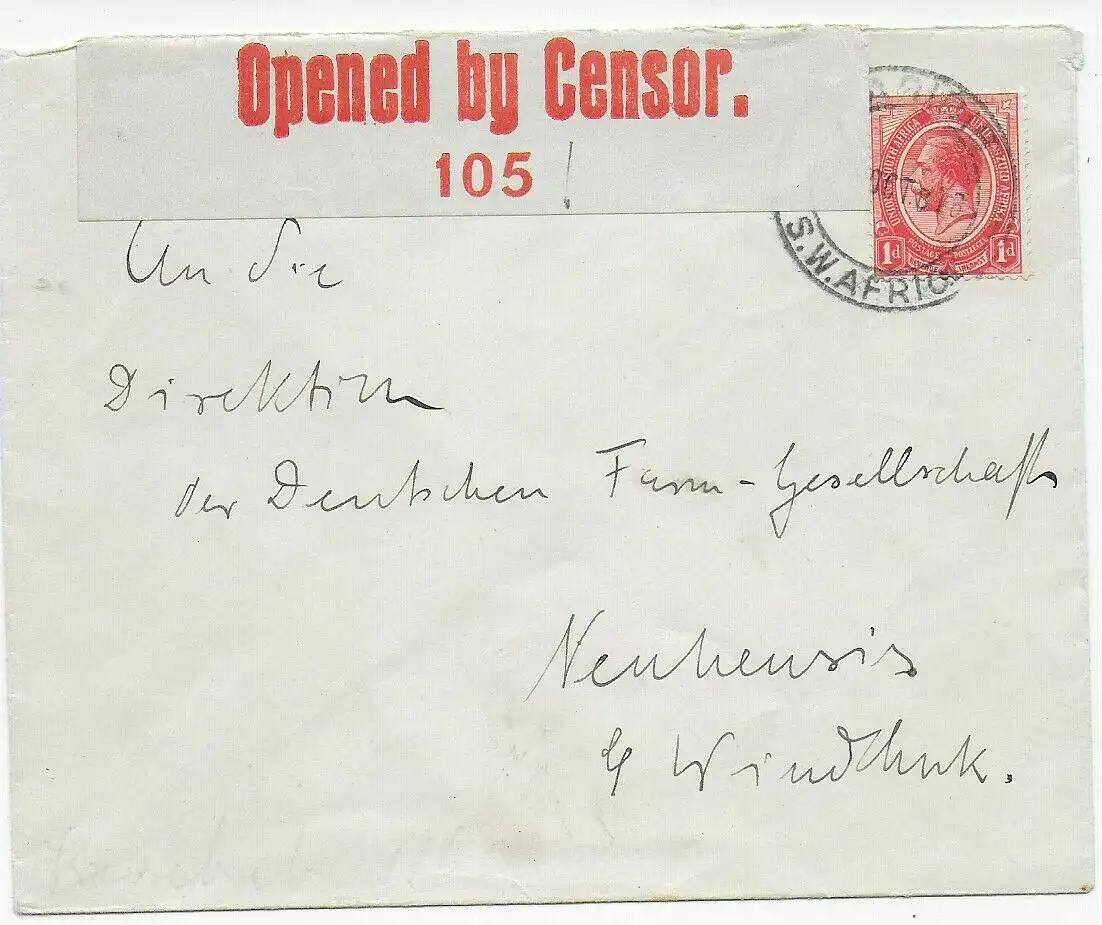 Opened by Censor.
105
S.W.AFRICA
UNION OF SOUTH AFRICA UNIE VAN ZUID AFRIKA
1d POSTAGE POSTZEGEL 1d
An die
Direktion
der Deutschen Farm-Gesellschaft
Neuheusis
Windhuk.